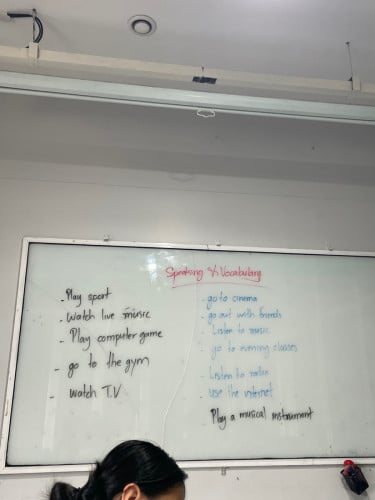 Speaking & Vocabulary
- Play sport
- Watch live music
- Play computer game
- go to the gym
- watch T.V
- go to cinema
- go out with friends
Listen to music
- go to evening classes
Listen to radio
- use the internet
Play a musical instrument